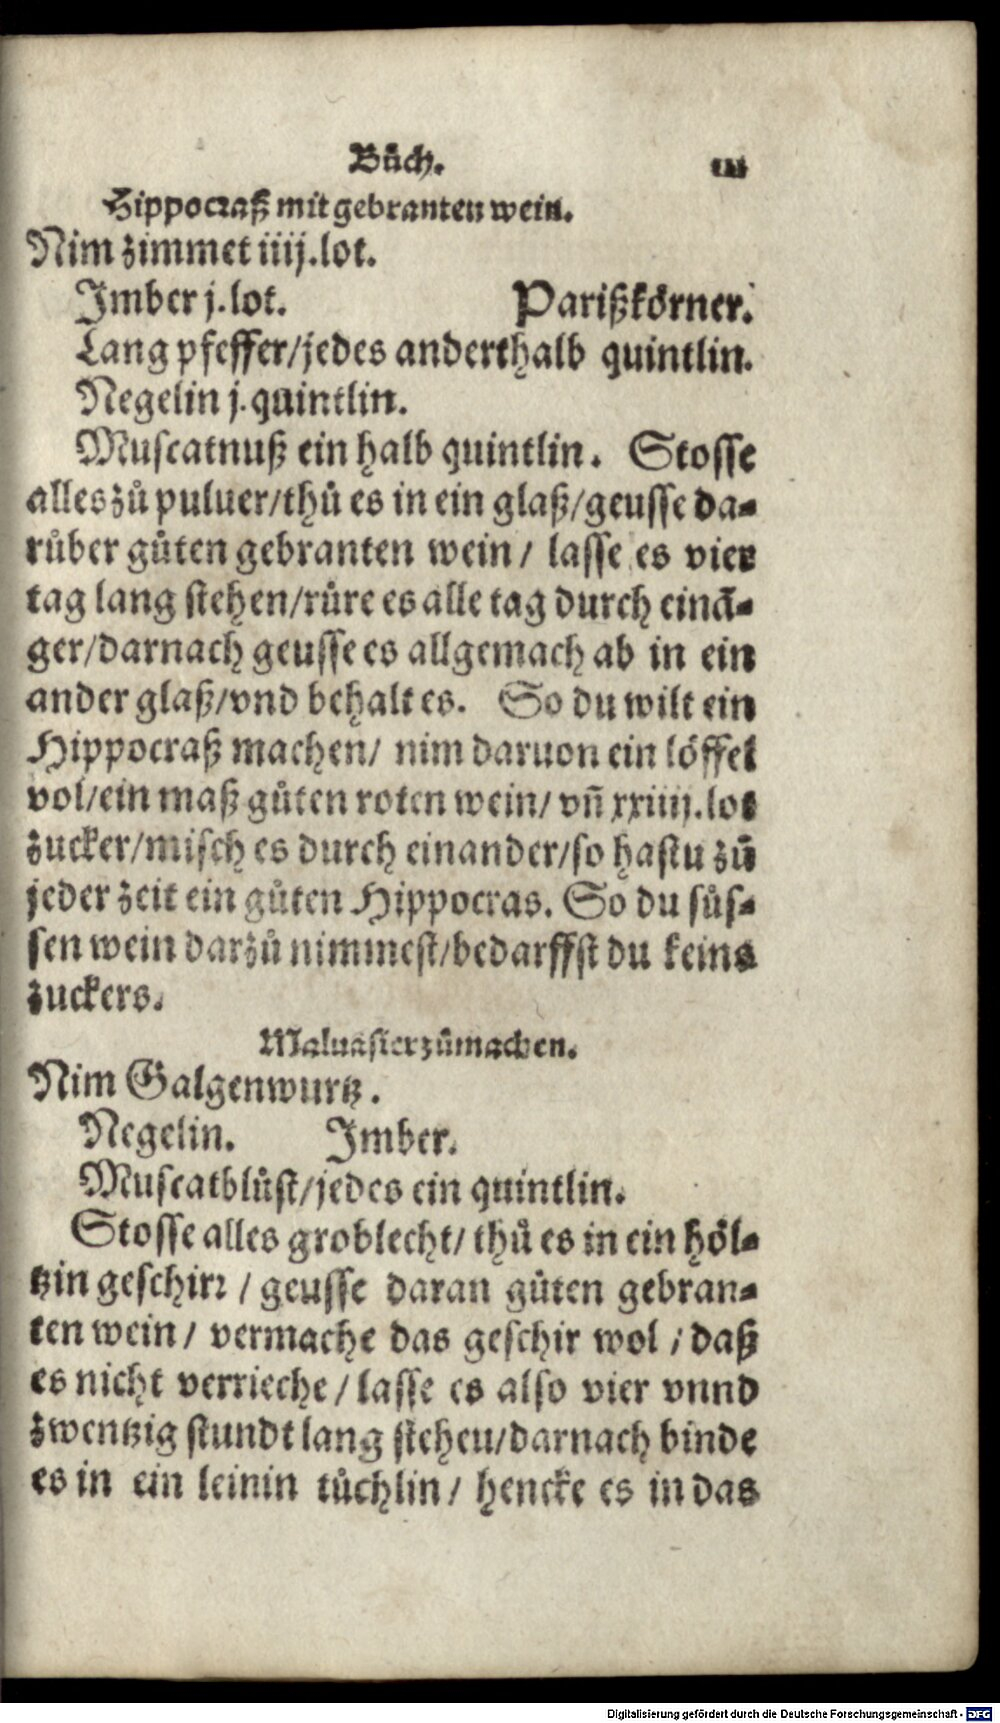 Bůch.
Hippocraß mit gebranten wein.
Nim zimmet iiij.lot.
Jmber j.lot. Parißkörner.
Lang pfeffer/jedes anderthalb quintlin.
Negelin j.quintlin.
Muscatnuß ein halb quintlin. Stosse
alles zů puluer/thů es in ein glaß/geusse da-
rüber gůten gebranten wein/ lasse es vier
tag lang stehen/rüre es alle tag durch einā-
ger/darnach geusse es allgemach ab in ein
ander glaß/vnd behalt es. So du wilt ein
Hippocraß machen/ nim daruon ein löffel
vol/ein maß gůten roten wein/ vñ xxiiij.lot
zucker/misch es durch einander/so hastu zů
jeder zeit ein gůten Hippocras. So du süs-
sen wein darzů nimmest/bedarffst du keins
zuckers.
Maluasier zůmachen.
Nim Galgenwurtz.
Negelin. Jmber.
Muscatblüst/jedes ein quintlin.
Stosse alles groblecht/ thů es in ein höl-
tzin geschirr / geusse daran gůten gebran-
ten wein/ vermache das geschir wol / daß
es nicht verrieche/ lasse es also vier vnnd
zwentzig stundt lang steheu/darnach binde
es in ein leinin tüchlin/ hencke es in das
Digitalisierung gefördert durch die Deutsche Forschungsgemeinschaft - DFG